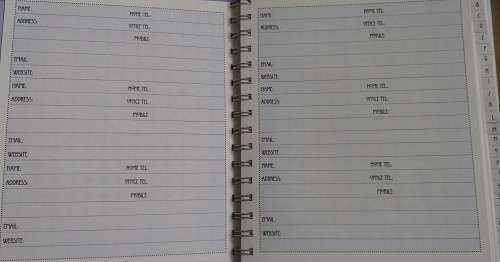 NAME: HOME TEL:
ADDRESS: OFFICE TEL:
MOBILE:
EMAIL:
WEBSITE:
NAME: HOME TEL:
ADDRESS: OFFICE TEL:
MOBILE:
EMAIL:
WEBSITE:
NAME: HOME TEL:
ADDRESS: OFFICE TEL:
MOBILE:
EMAIL:
WEBSITE:
NAME: HOME TEL:
ADDRESS: OFFICE TEL:
MOBILE:
EMAIL:
WEBSITE:
NAME: HOME TEL:
ADDRESS: OFFICE TEL:
MOBILE:
EMAIL:
WEBSITE:
NAME: HOME TEL:
ADDRESS: OFFICE TEL:
MOBILE:
EMAIL:
WEBSITE: